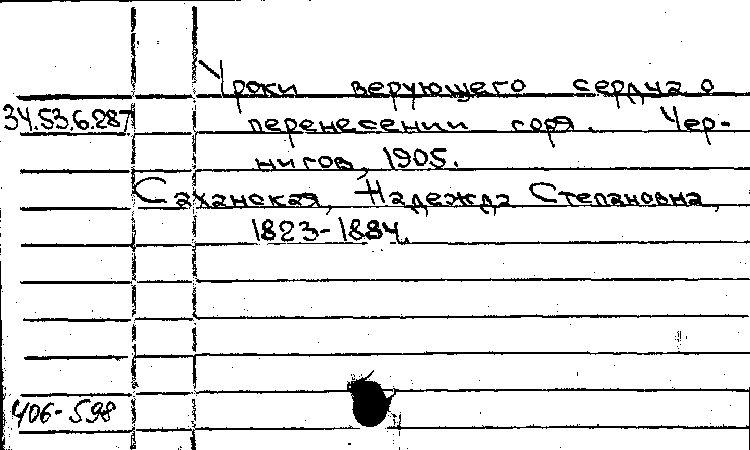 Уроки верующего сердца о
34.53.6.287 перенесении горя. Чер-
нигов, 1905.
Саханская, Надежда Степановна,
1823-1884.
406-598